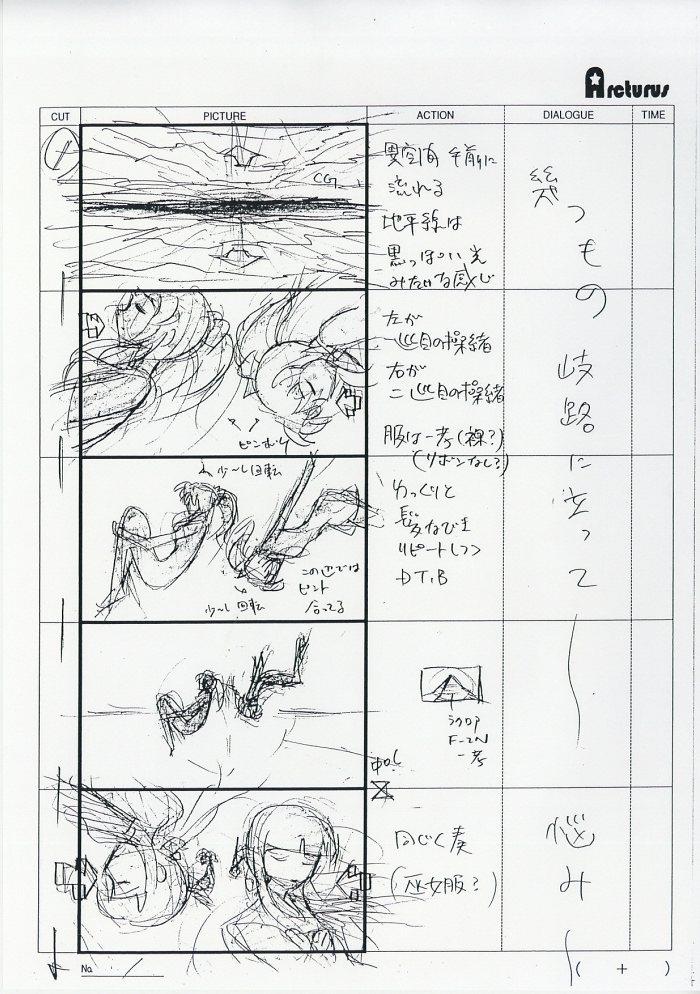 Arcturus
CUT PICTURE ACTION DIALOGUE TIME
1
CG
異空間 手前に
流れる
地平線は
黒っぽい光
みたいな感じ
左が
一巡目の操緒
右が
二巡目の操緒
ピンボケ
服は一考(裸?)
(リボンなし?)
少〜し回転
少〜し回転
この辺では
ピント
合ってる
ゆっくりと
髪なびき
リピートしつつ
DT.B
一考
中O.L
同じく奏
(巫女服?)
幾つもの岐路に立って
悩み
No.
( + )